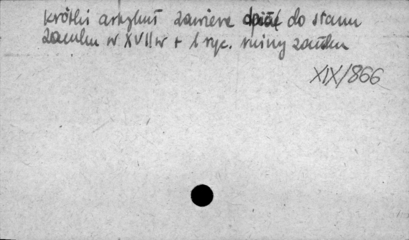 krótki artykuł zawiera opis do stanu
zamku w XVII w + 1 ryc. ruiny zamku
XIX/866